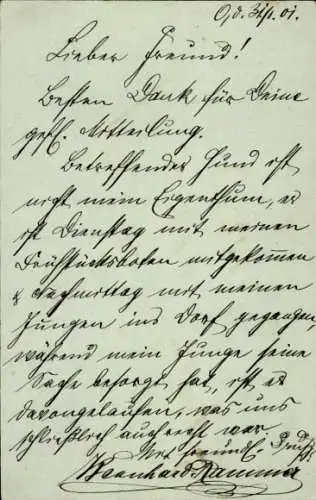 O, d. 3/4. 01.
Lieber Freund!
Besten Dank für Deine
gefl. Mitteilung.
Betreffender Hund ist
nicht mein Eigenthum, er
ist Dienstag mit meinen
Frühstücksboten mitgekommen
& Nachmittag mit meinen
Jungen ins Dorf gegangen,
während mein Junge seine
Sache besorgt hat, ist er
davongelaufen, was uns
schließlich auch recht war
Mit freundl. Gruß
Bernhard